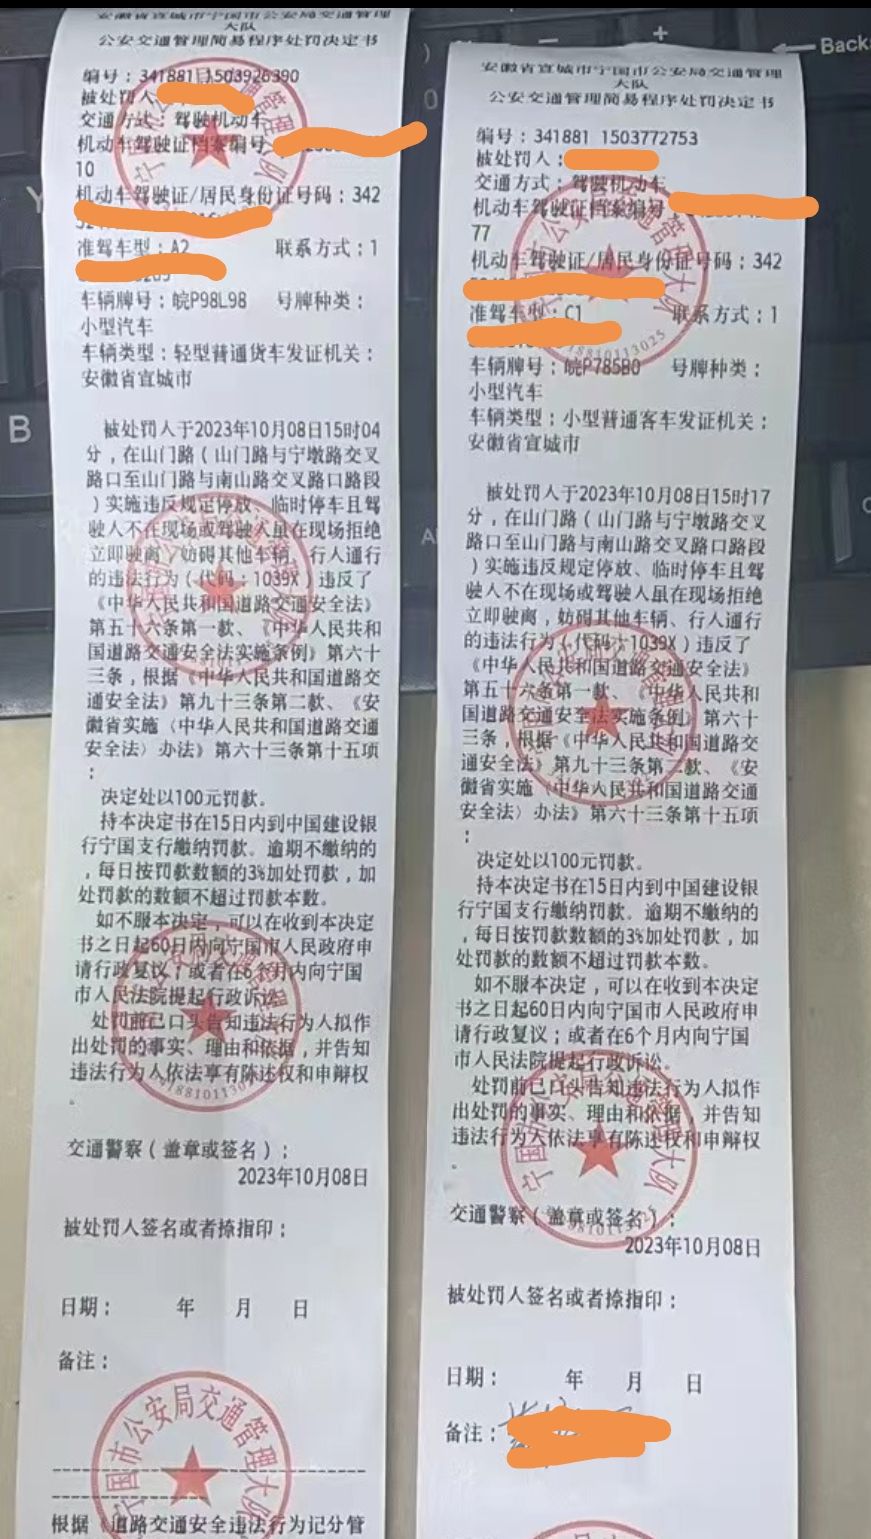 安徽省宣城市宁国市公安局交通管理
大队
公安交通管理简易程序处罚决定书
编号：341881 1503926390
被处罚人
交通方式：驾驶机动车
机动车驾驶证档案编号
10
机动车驾驶证/居民身份证号码：342
准驾车型：A2 联系方式：1
车辆牌号：皖P98L98 号牌种类：
小型汽车
车辆类型：轻型普通货车发证机关：
安徽省宣城市
被处罚人于2023年10月08日15时04
分，在山门路（山门路与宁墩路交叉
路口至山门路与南山路交叉路口路段
）实施违反规定停放、临时停车且驾
驶人不在现场或驾驶人虽在现场拒绝
立即驶离，妨碍其他车辆、行人通行
的违法行为（代码：1039X）违反了
《中华人民共和国道路交通安全法》
第五十六条第一款、《中华人民共和
国道路交通安全法实施条例》第六十
三条，根据《中华人民共和国道路交
通安全法》第九十三条第二款、《安
徽省实施〈中华人民共和国道路交通
安全法〉办法》第六十三条第十五项
：
决定处以100元罚款。
持本决定书在15日内到中国建设银
行宁国支行缴纳罚款。逾期不缴纳的
，每日按罚款数额的3%加处罚款，加
处罚款的数额不超过罚款本数。
如不服本决定，可以在收到本决定
书之日起60日内向宁国市人民政府申
请行政复议；或者在6个月内向宁国
市人民法院提起行政诉讼。
处罚前已口头告知违法行为人拟作
出处罚的事实、理由和依据，并告知
违法行为人依法享有陈述权和申辩权
。
交通警察（盖章或签名）：
2023年10月08日
被处罚人签名或者捺指印：
日期： 年 月 日
备注：
宁国市公安局交通管理大队
根据《道路交通安全违法行为记分管
安徽省宣城市宁国市公安局交通管理
大队
公安交通管理简易程序处罚决定书
编号：341881 1503772753
被处罚人：
交通方式：驾驶机动车
机动车驾驶证档案编号
77
机动车驾驶证/居民身份证号码：342
准驾车型：C1 联系方式：1
车辆牌号：皖P785B0 号牌种类：
小型汽车
车辆类型：小型普通客车发证机关：
安徽省宣城市
被处罚人于2023年10月08日15时17
分，在山门路（山门路与宁墩路交叉
路口至山门路与南山路交叉路口路段
）实施违反规定停放、临时停车且驾
驶人不在现场或驾驶人虽在现场拒绝
立即驶离，妨碍其他车辆、行人通行
的违法行为（代码：1039X）违反了
《中华人民共和国道路交通安全法》
第五十六条第一款、《中华人民共和
国道路交通安全法实施条例》第六十
三条，根据《中华人民共和国道路交
通安全法》第九十三条第二款、《安
徽省实施〈中华人民共和国道路交通
安全法〉办法》第六十三条第十五项
：
决定处以100元罚款。
持本决定书在15日内到中国建设银
行宁国支行缴纳罚款。逾期不缴纳的
，每日按罚款数额的3%加处罚款，加
处罚款的数额不超过罚款本数。
如不服本决定，可以在收到本决定
书之日起60日内向宁国市人民政府申
请行政复议；或者在6个月内向宁国
市人民法院提起行政诉讼。
处罚前已口头告知违法行为人拟作
出处罚的事实、理由和依据，并告知
违法行为人依法享有陈述权和申辩权
。
交通警察（盖章或签名）：
2023年10月08日
被处罚人签名或者捺指印：
日期： 年 月 日
备注：
Back
B